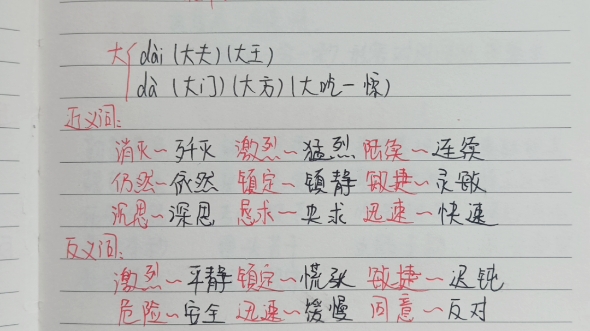 大 dài (大夫) (大王)
dà (大门) (大方) (大吃一惊)
近义词:
消灭~歼灭 激烈~猛烈 陆续~连续
仍然~依然 镇定~镇静 敏捷~灵敏
沉思~深思 恳求~央求 迅速~快速
反义词:
激烈~平静 镇定~慌张 敏捷~迟钝
危险~安全 迅速~缓慢 同意~反对